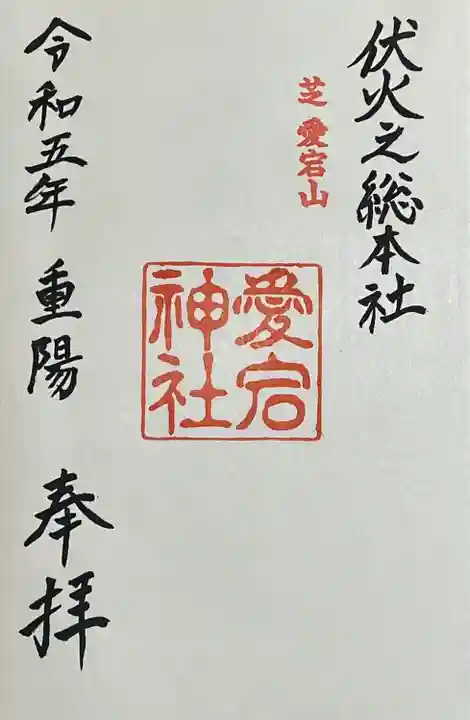 伏火之総本社
芝 愛宕山
愛宕
神社
令和五年 重陽 奉拝